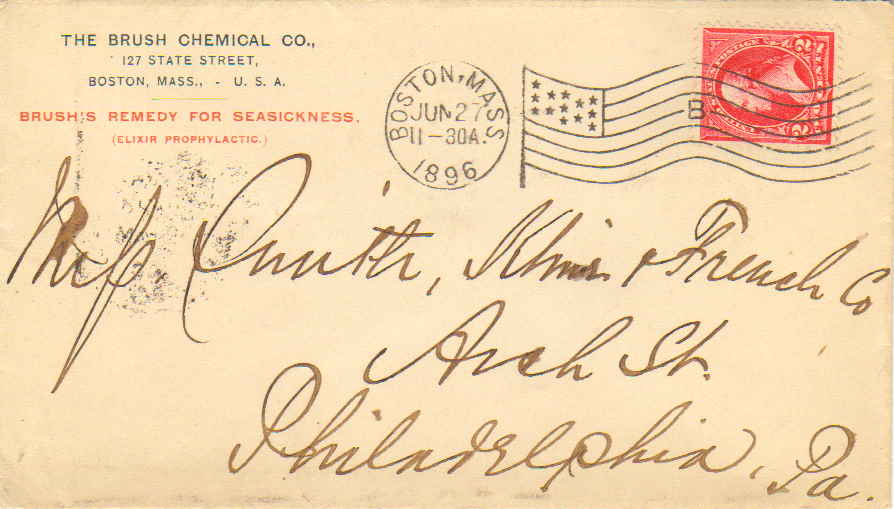 THE BRUSH CHEMICAL CO.,
127 STATE STREET,
BOSTON, MASS., - U. S. A.
BRUSH'S REMEDY FOR SEASICKNESS.
(ELIXIR PROPHYLACTIC.)
BOSTON, MASS
JUN 27
11-30A.
1896
B
Smith, Kline & French Co
Arch St.
Philadelphia, Pa.